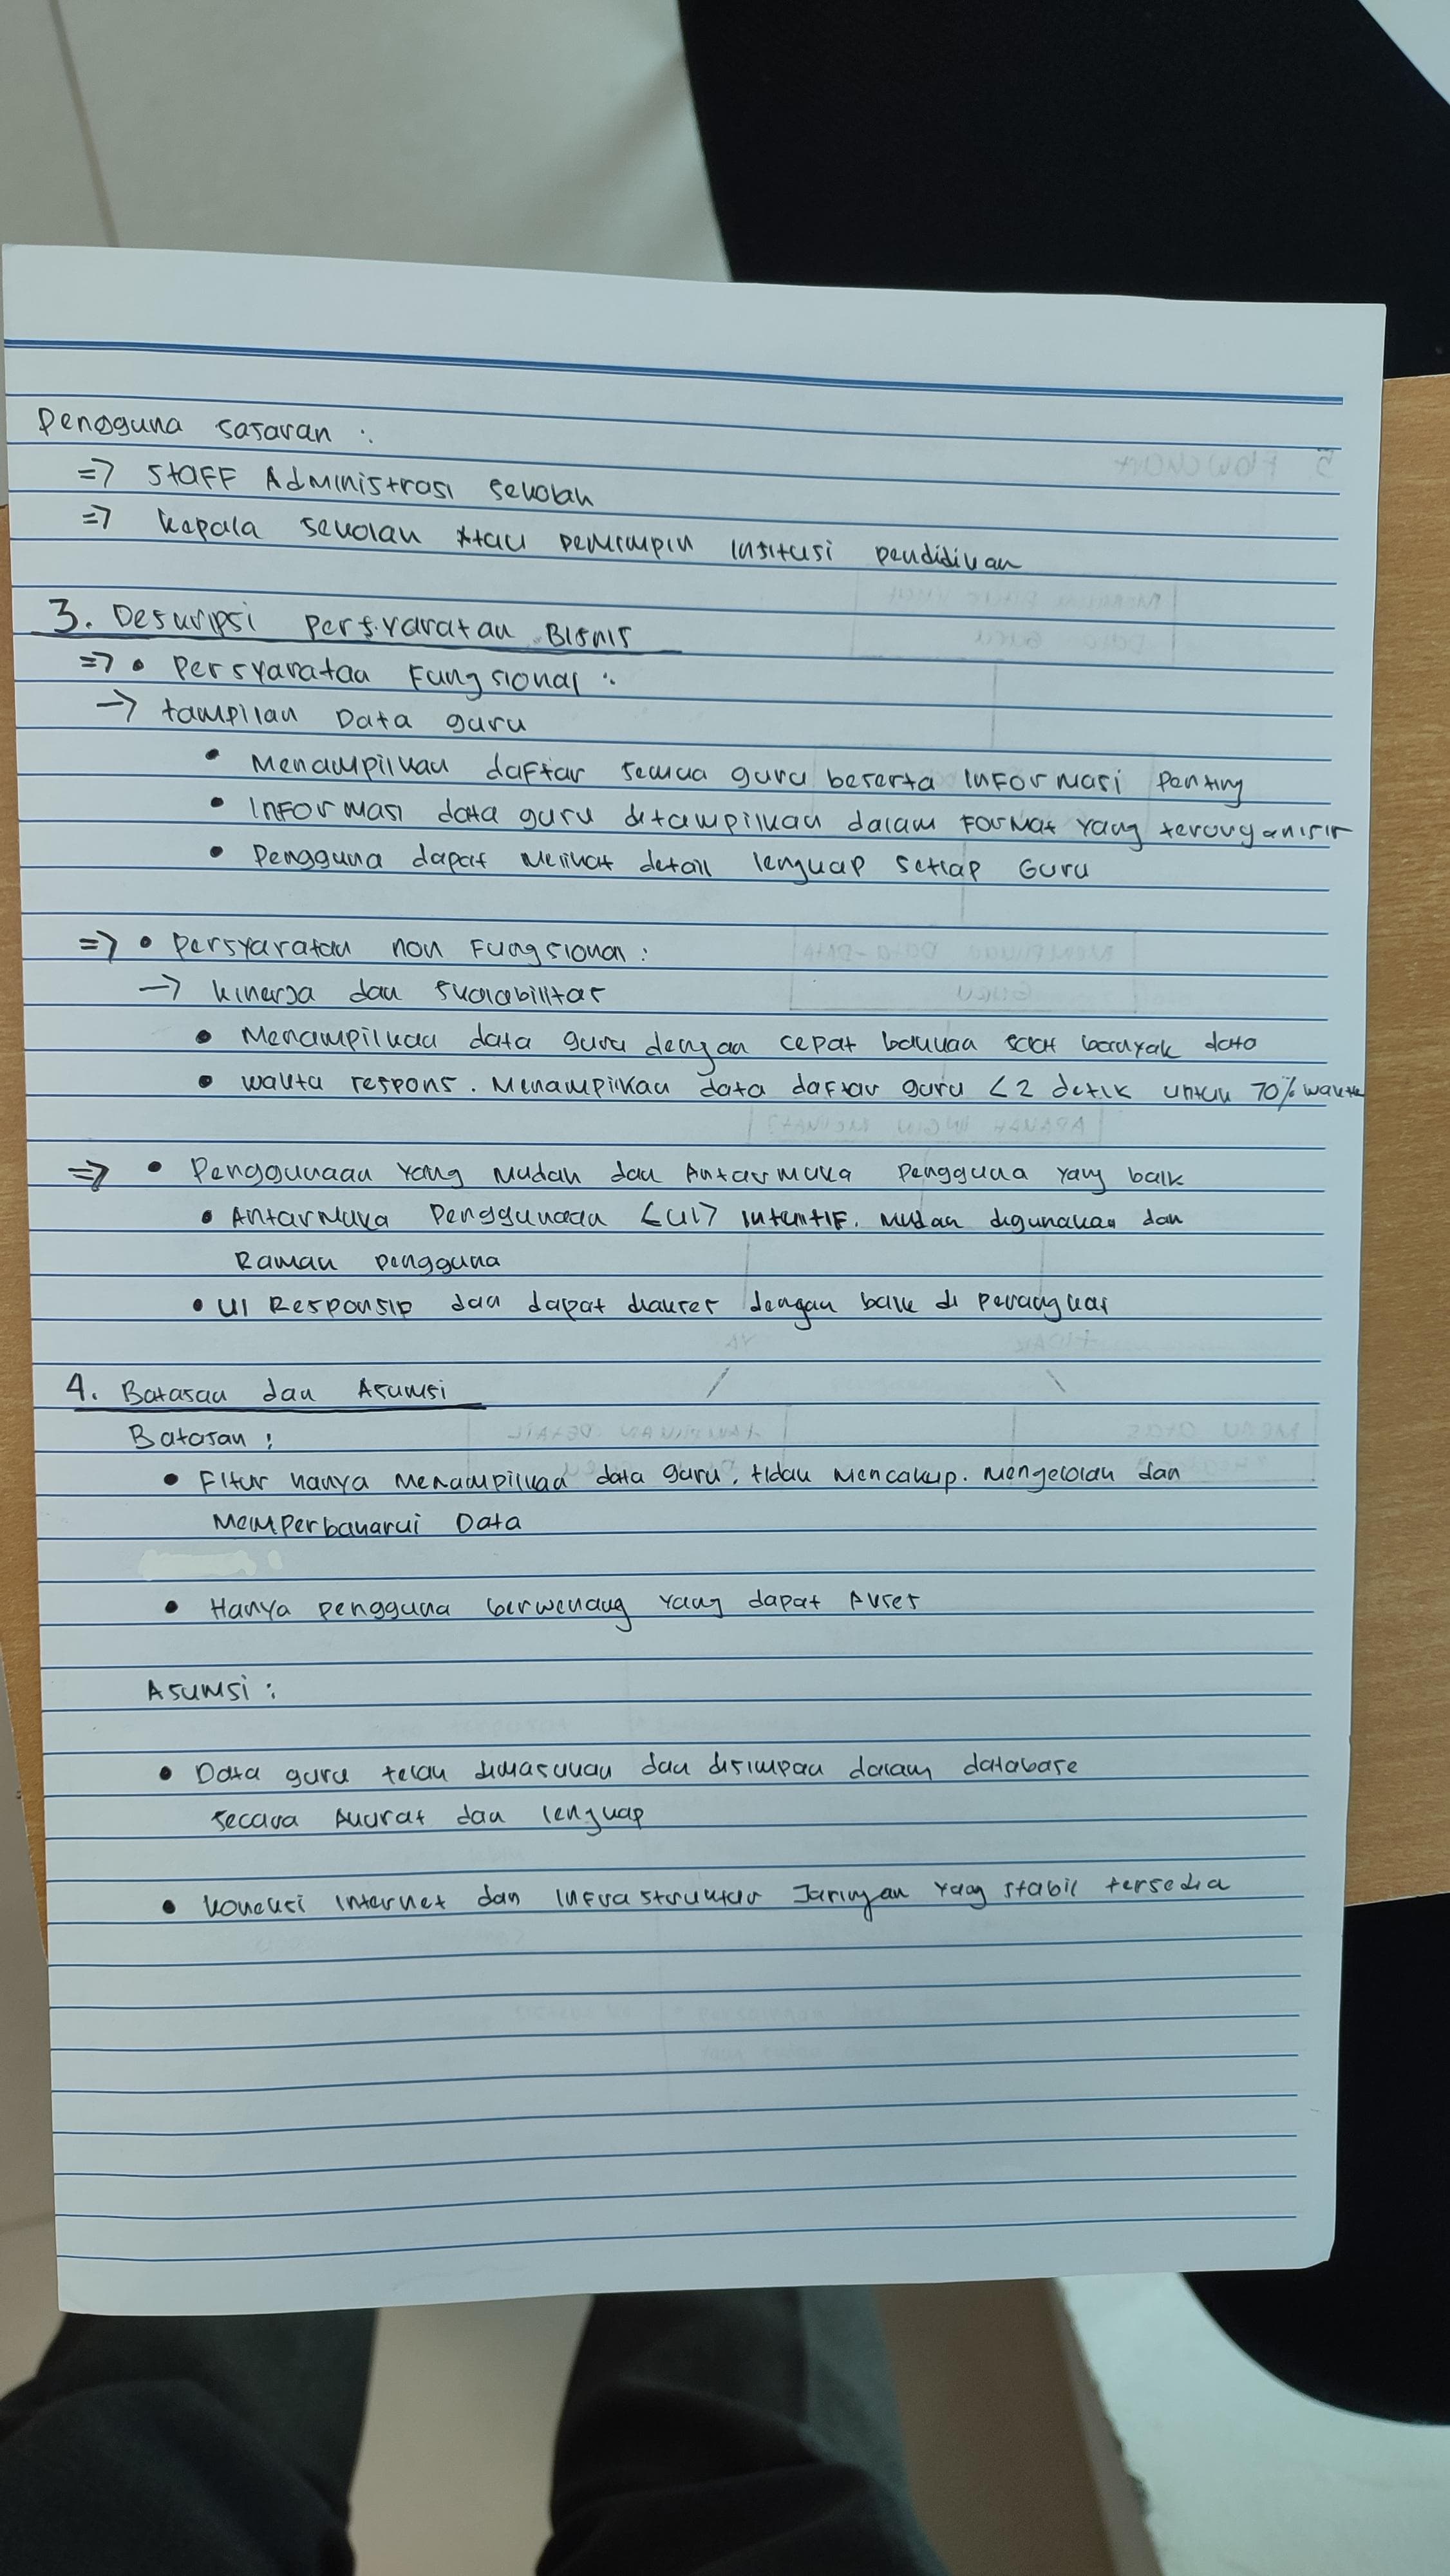 Pengguna sasaran :
=> Staff Administrasi sekolah
=> Kepala sekolah Atau pemimpin Insitusi pendidikan
3. Deskripsi Persyaratan Bisnis
=> • Persyarataa Fungsional :
-> tampilan Data guru
• Menampilkan daftar semua guru beserta informasi Penting
• Informasi data guru ditampilkan dalam Format yang terorganisir
• Pengguna dapat Melihat detail lengkap setiap Guru
=> • Persyaratan non Fungsional :
-> Kinerja dan skalabilitas
• Menampilkan data guru dengan cepat bahkan saat banyak data
• waktu respons. Menampilkan data daftar guru <2 detik untuk 70% waktu
=> • Penggunaan Yang Mudah dan Antarmuka Pengguna yang baik
• Antarmuka Penggunaan <UI> Intuitif. Mudah digunakan dan
Ramah pengguna
• UI Responsip dan dapat diakses dengan baik di perangkat
4. Batasan dan Asumsi
Batasan :
• Fitur hanya Menampilkan data guru. tidak Mencakup. Mengelolah dan
Memperbaharui Data
• Hanya pengguna berwenang yang dapat Akses
Asumsi :
• Data guru telah dimasukan dan disimpan dalam database
secara Akurat dan lengkap
• Koneksi Internet dan Infrastruktur Jaringan yang stabil tersedia